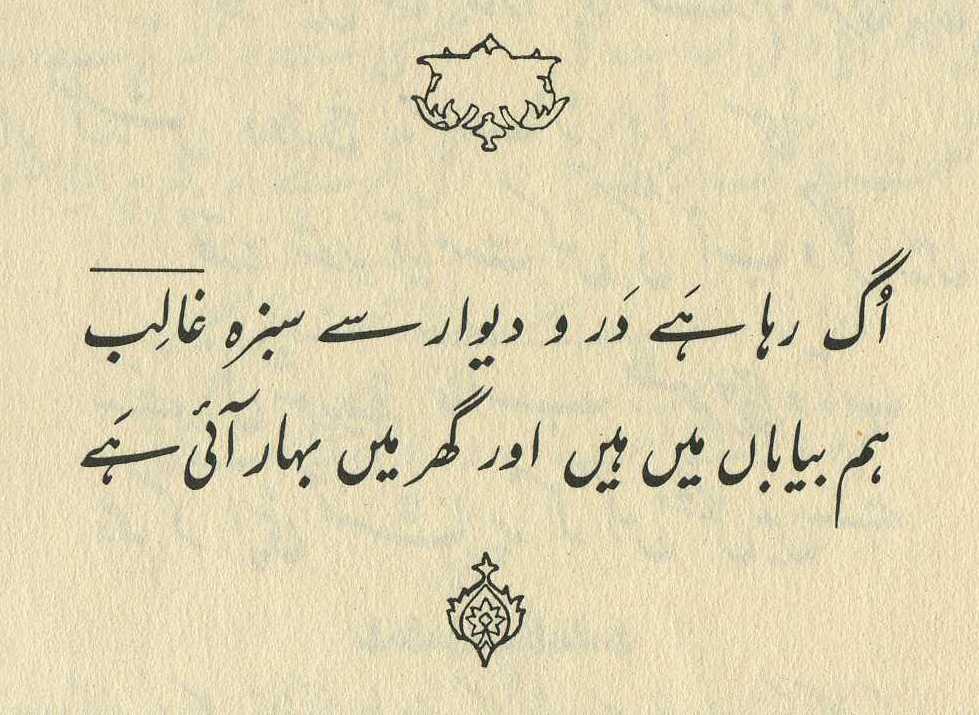 اُگ رہا ہَے دَر و دیوار سے سبزہ غالِب
ہم بیاباں میں ہیں اور گھر میں بہار آئی ہَے